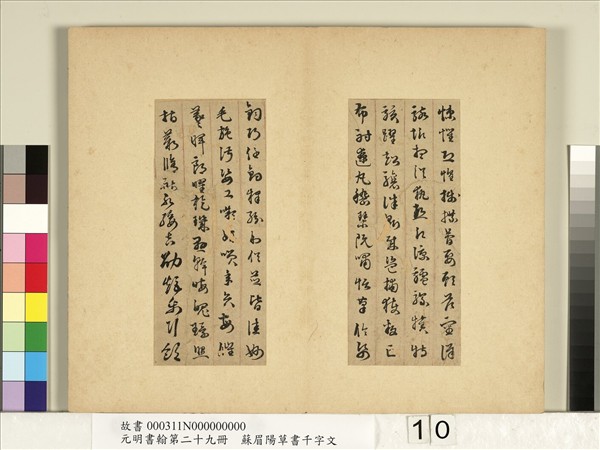 悚懼恐惶牋牒簡要顧答審詳
骸垢想浴執熱願涼驢騾犢特
駭躍超驤誅斬賊盜捕獲叛亡
布射遼丸嵇琴阮嘯恬筆倫紙
鈞巧任釣釋紛利俗並皆佳妙
毛施淑姿工顰妍笑年矢每催
羲暉朗曜璇璣懸斡晦魄環照
指薪修祜永綏吉劭矩步引領
故書 000311N000000000
元明書翰第二十九冊 蘇眉陽草書千字文
10